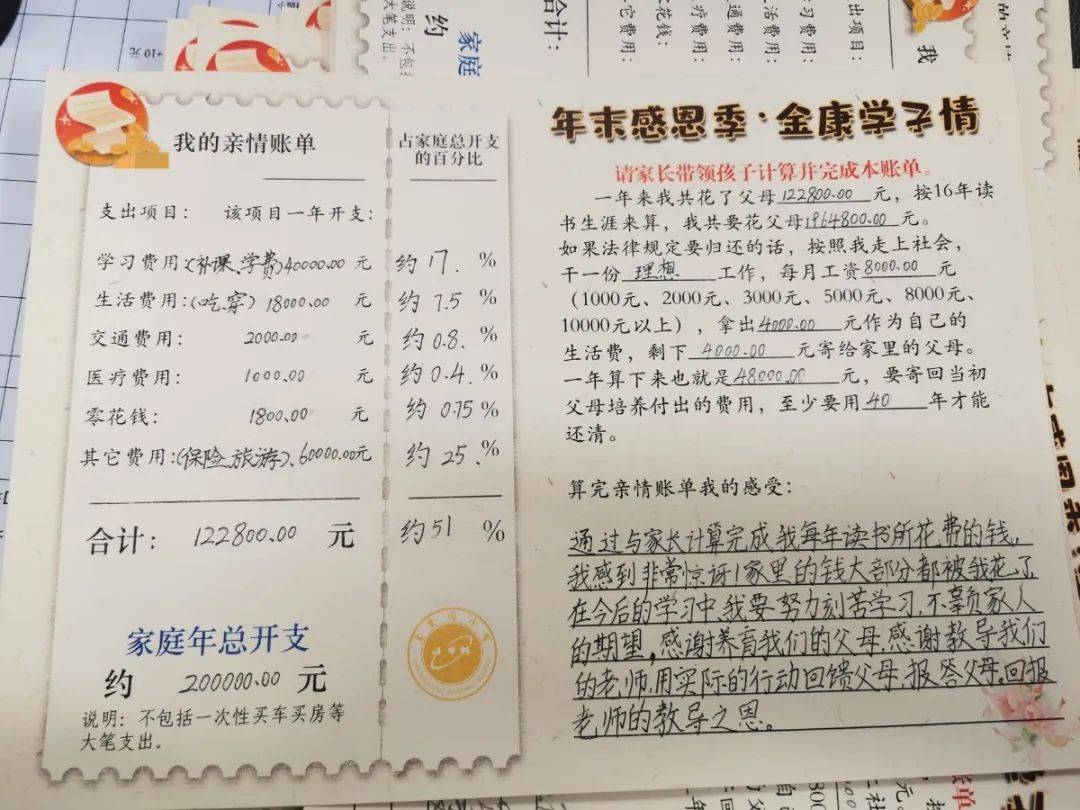 +10元
说明：不包括
大笔支出。
约
家庭
合计：
它费用：
零花钱：
疗费用：
通费用：
活费用：
习费用：
出项目：
我的亲情账单
占家庭总开支
的百分比
支出项目： 该项目一年开支：
学习费用：(补课、学费)40000.00 元 约17. %
生活费用：(吃.穿) 18000.00 元 约 7.5 %
交通费用： 2000.00 元 约0.8. %
医疗费用： 1000.00 元 约0.4. %
零花钱： 1800.00 元 约 0.75 %
其它费用：(保险.旅游)、60000.00元 约 25. %
合计： 122800.00 元 约51 %
家庭年总开支
约 200000.00 元
说明：不包括一次性买车买房等
大笔支出。
年末感恩季·金康学子情
请家长带领孩子计算并完成本账单。
一年来我共花了父母122800.00元，按16年读
书生涯来算，我共要花父母1964800.00元。
如果法律规定要归还的话，按照我走上社会，
干一份理想工作，每月工资8000.00元
（1000元、2000元、3000元、5000元、8000元、
10000元以上），拿出4000.00元作为自己的
生活费，剩下4000.00元寄给家里的父母。
一年算下来也就是48000.00元，要寄回当初
父母培养付出的费用，至少要用40年才能
还清。
算完亲情账单我的感受：
通过与家长计算完成,我每年读书所花费的钱,
我感到非常惊讶!家里的钱大部分都被我花了
在今后的学习中,我要努力刻苦学习,不辜负家人
的期望,感谢养育我们的父母,感谢教导我们
的老师,用实际的行动回馈父母,报答父母。回报
老师的教导之恩。